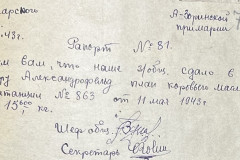 арского
А-Зоринской
43г.
примарии
Рапорт № 81.
м вам, что наше общ. сдало в
Александрофельд план коровьего масл
итанции № 863 от 11 мая 1943
15 кг.
Шеф общ.
Секретарь